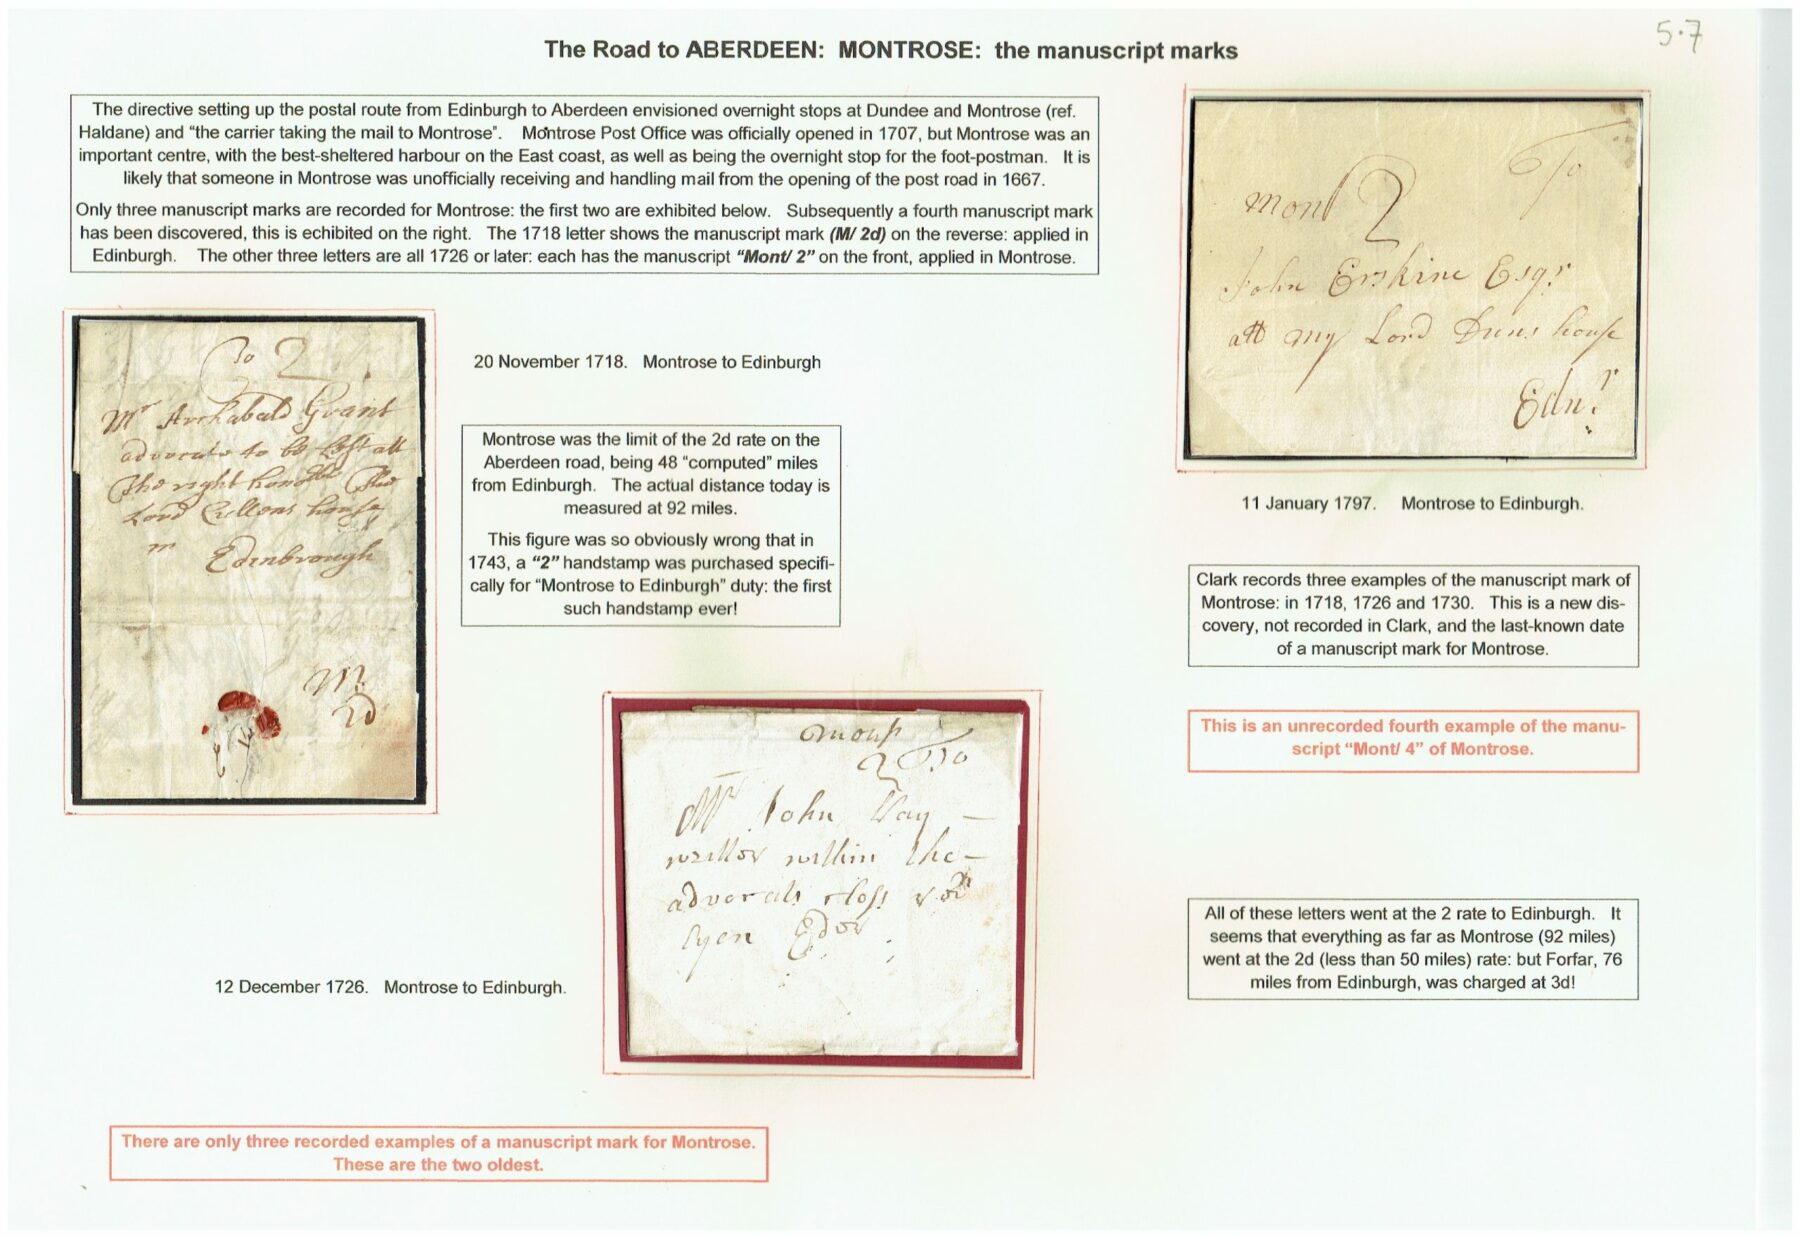 5.7
The Road to ABERDEEN: MONTROSE: the manuscript marks
The directive setting up the postal route from Edinburgh to Aberdeen envisioned overnight stops at Dundee and Montrose (ref.
Haldane) and “the carrier taking the mail to Montrose”. Montrose Post Office was officially opened in 1707, but Montrose was an
important centre, with the best-sheltered harbour on the East coast, as well as being the overnight stop for the foot-postman. It is
likely that someone in Montrose was unofficially receiving and handling mail from the opening of the post road in 1667.
Only three manuscript marks are recorded for Montrose: the first two are exhibited below. Subsequently a fourth manuscript mark
has been discovered, this is echibited on the right. The 1718 letter shows the manuscript mark (M/ 2d) on the reverse: applied in
Edinburgh. The other three letters are all 1726 or later: each has the manuscript “Mont/ 2” on the front, applied in Montrose.
To 2
Mr Archabald Grant
advocate to be left att
The right hono
Lord Cullens house
Edenbrough
M
2d
20 November 1718. Montrose to Edinburgh
Montrose was the limit of the 2d rate on the
Aberdeen road, being 48 “computed” miles
from Edinburgh. The actual distance today is
measured at 92 miles.
This figure was so obviously wrong that in
1743, a “2” handstamp was purchased specifi-
cally for “Montrose to Edinburgh” duty: the first
such handstamp ever!
12 December 1726. Montrose to Edinburgh.
2 To
Mr John
within the
advocats closs
Edr
There are only three recorded examples of a manuscript mark for Montrose.
These are the two oldest.
To
mont 2
John Erskine Esqr
att my Lord Duns house
Ednr
11 January 1797. Montrose to Edinburgh.
Clark records three examples of the manuscript mark of
Montrose: in 1718, 1726 and 1730. This is a new dis-
covery, not recorded in Clark, and the last-known date
of a manuscript mark for Montrose.
This is an unrecorded fourth example of the manu-
script “Mont/ 4” of Montrose.
All of these letters went at the 2 rate to Edinburgh. It
seems that everything as far as Montrose (92 miles)
went at the 2d (less than 50 miles) rate: but Forfar, 76
miles from Edinburgh, was charged at 3d!